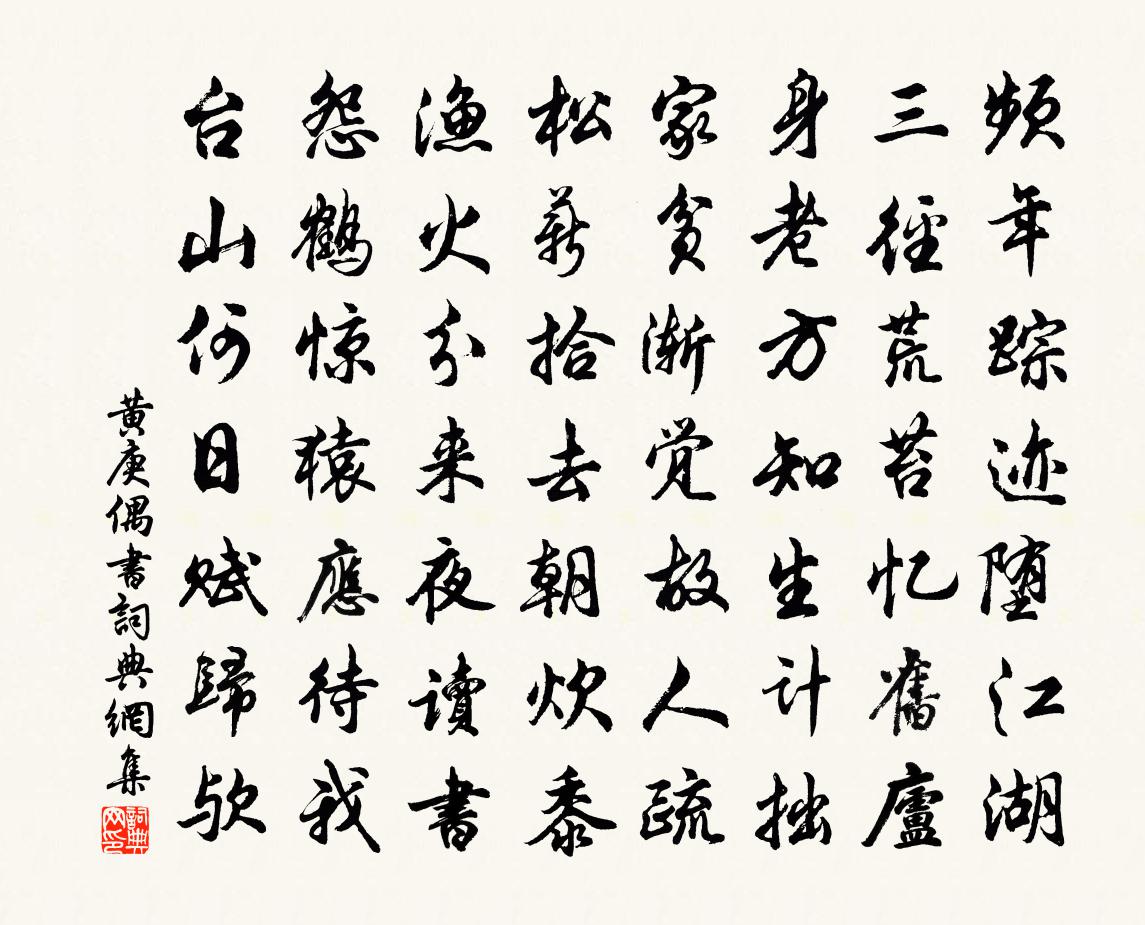 頻年踪迹堕江湖
三徑荒苔忆舊廬
身老方知生计拙
家貧漸觉故人疏
松薪拾去朝炊黍
漁火分来夜讀書
怨鶴惊猿應待我
台山何日赋歸欤
黄庚偶書詞典網集
詞典网印